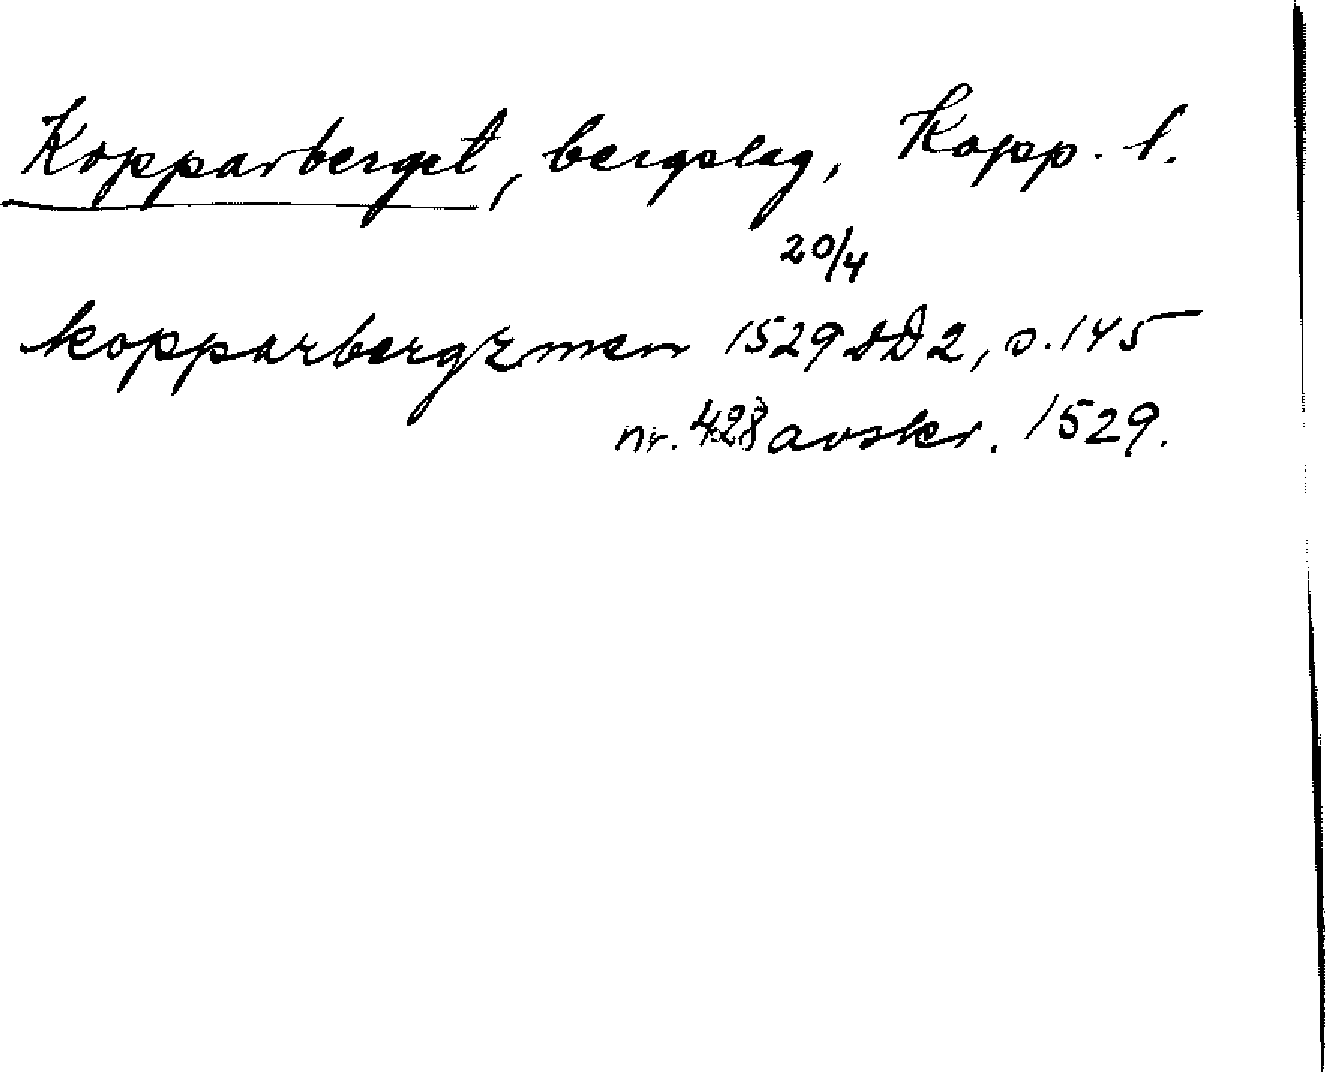 Kopparberget, bergslag, Kopp. l.
20/4
kopparbergzmen 1529 DD 2, s. 145
nr. 428 avskr. 1529.